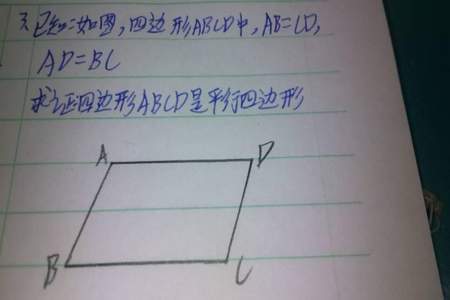 3.已知:如图,四边形ABCD中,AB=CD,
AD=BC
求证四边形ABCD是平行四边形
A
D
B
C